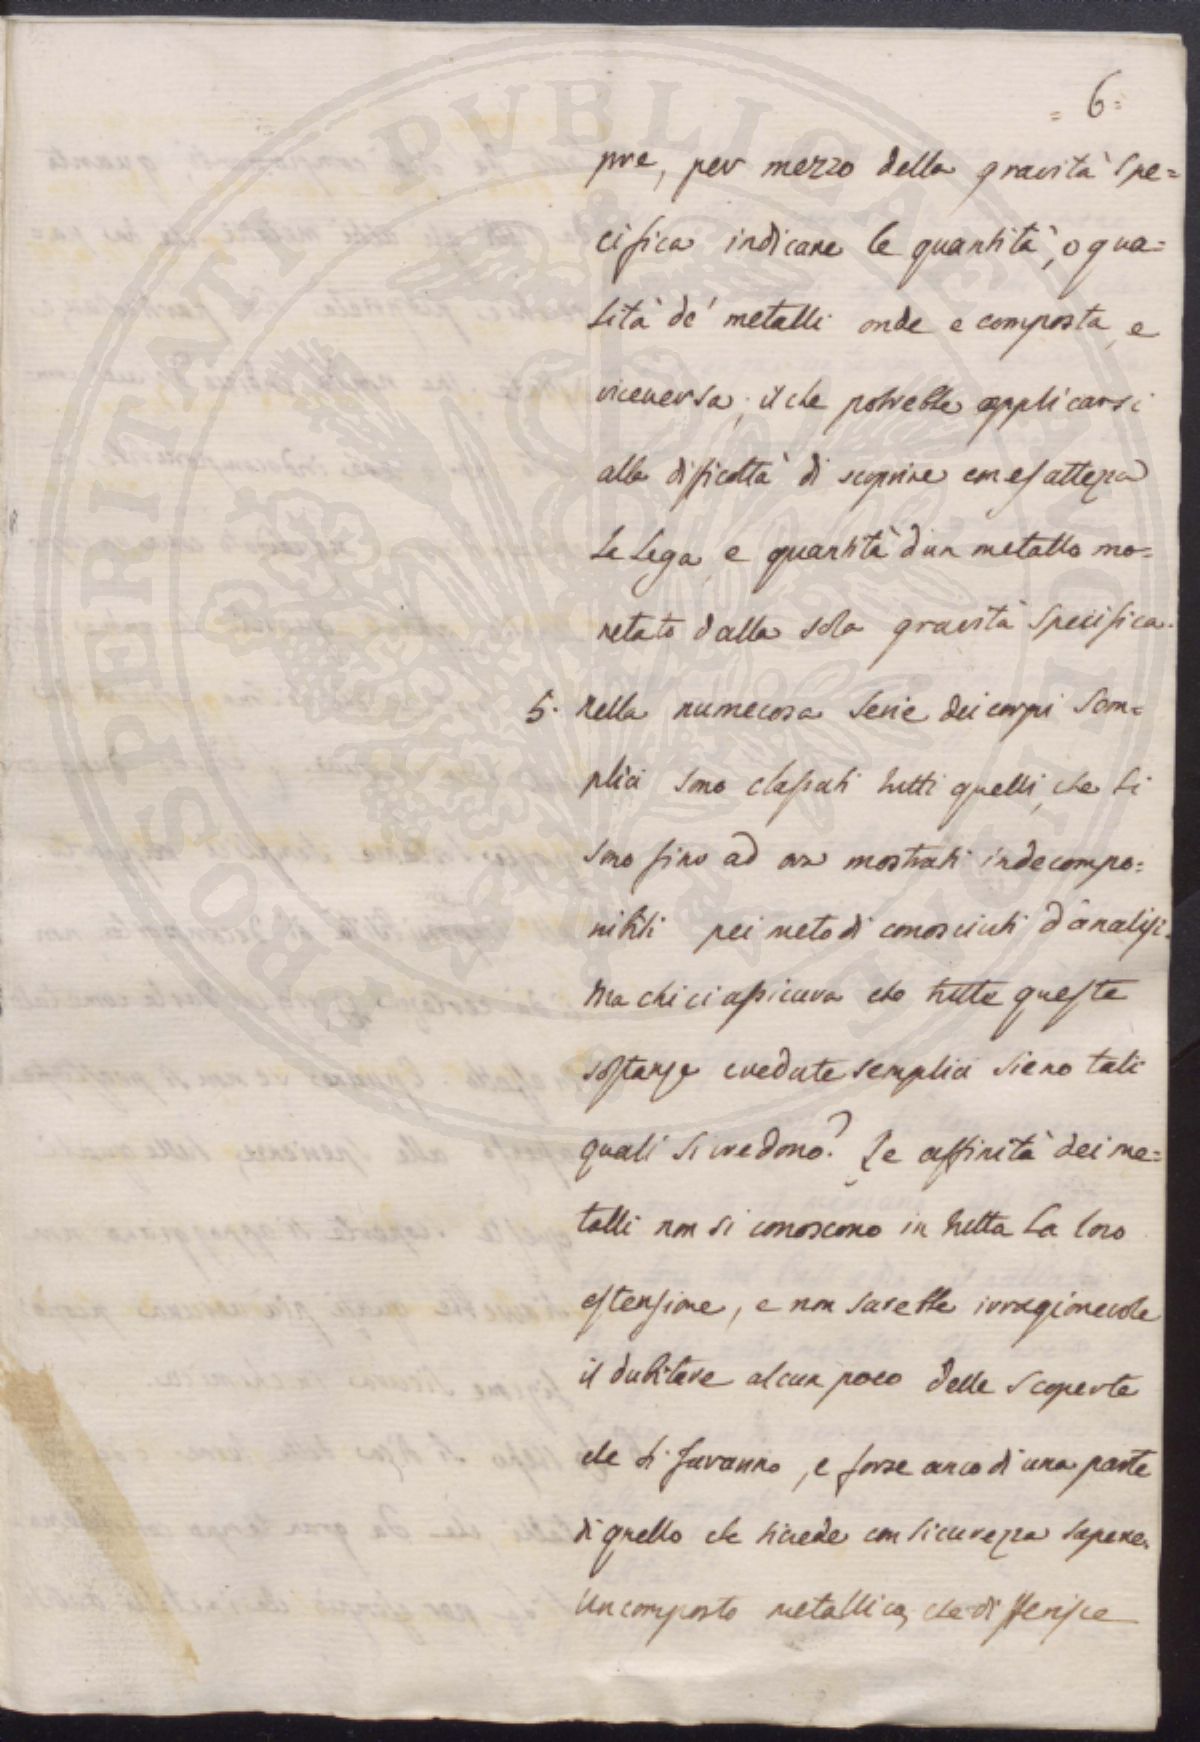 = 6 =
pre, per mezzo della gravità spe=
cifica indicare le quantità, o qua=
lità de' metalli onde e composta, e
viceversa; il che potrebbe applicarsi
alla difficoltà di scoprire con esattezza
la lega, e quantità d'un metallo mo=
netato dalla sola gravità specifica.
5. Nella numerosa serie dei corpi sem=
plici sono classati tutti quelli, che si
sono fino ad ora mostrati indecompo=
nibili pei metodi conosciuti d'analisi.
Ma chi ci assicura che tutte queste
sostanze credute semplici sieno tali
quali si credono? Le affinità dei me=
talli non si conoscono in tutta la loro
estensione, e non sarebbe irragionevole
il dubitare alcun poco delle scoperte
che si faranno, e forse anco di una parte
di quello che si crede con sicurezza sapere.
Un composto metallico, che differisce
PROSPERITATI PUBLICAE AUGENDAE